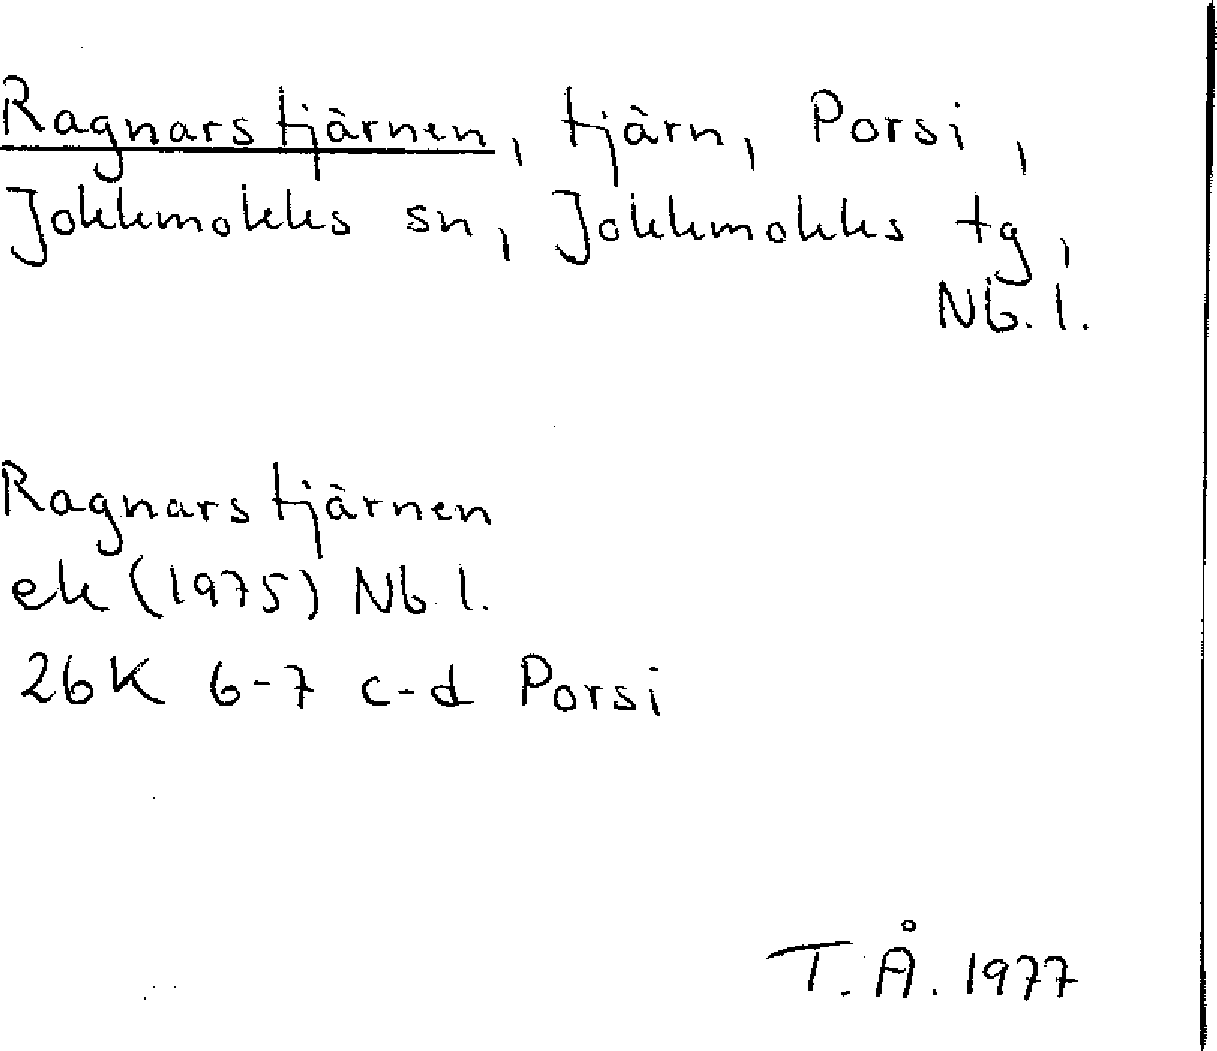 Ragnarstjärnen, tjärn, Porsi,
Jokkmokks sn, Jokkmokks tg,
Nb. l.
Ragnarstjärnen
ek (1975) Nb. l.
26K 6-7 c-d Porsi
T. Å. 1977